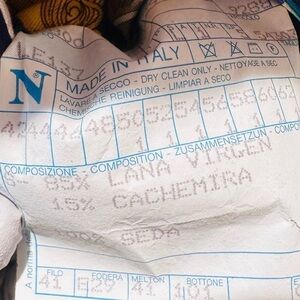 LF137
N MADE IN ITALY
LAVARE A SECCO - DRY CLEAN ONLY - NETTOYAGE A SEC
CHEMISCHE REINIGUNG - LIMPIAR A SECO
42 44 46 48 50 52 54 56 58 60 62
1 1 1 1
COMPOSIZIONE - COMPOSITION - ZUSAMMENSETZUNG
S- 85% LANA VIRGEN
15% CACHEMIRA
SEDA
FILO FODERA MELTON BOTTONE
41 E29 41 101